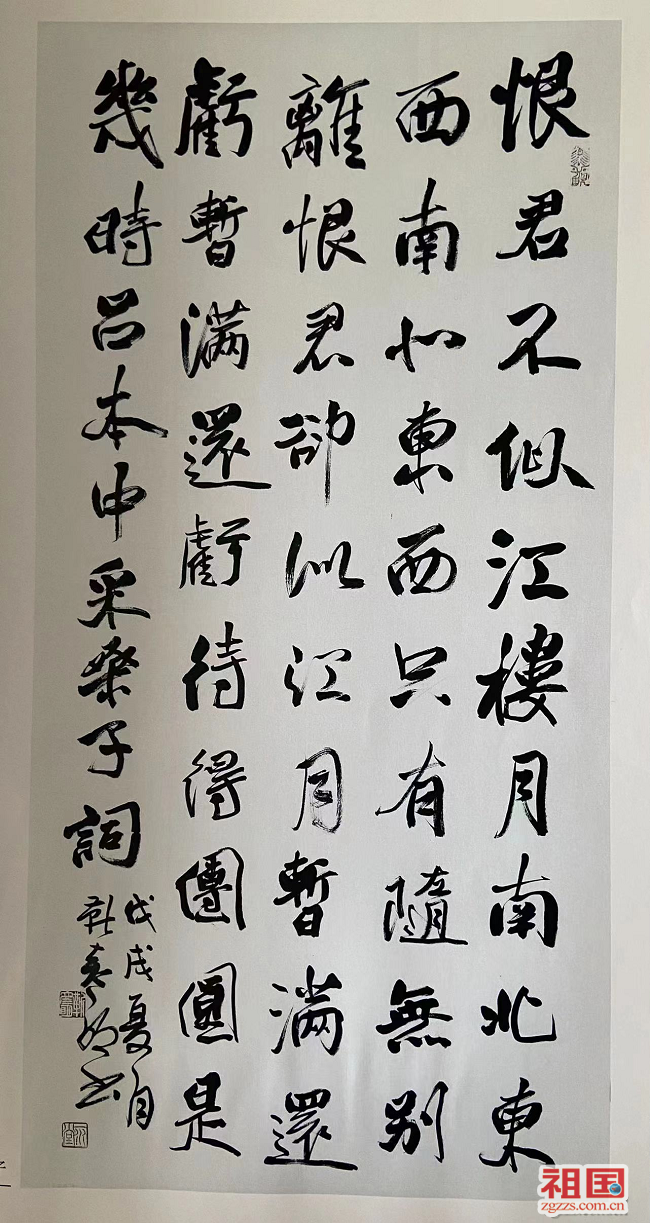 恨君不似江樓月南北東
西南北東西只有隨無別
離恨君卻似江月暫滿還
虧暫滿還虧待得團圓是
幾時呂本中采桑子詞
戊戌夏月
書
祖国
zgzzs.com.cn